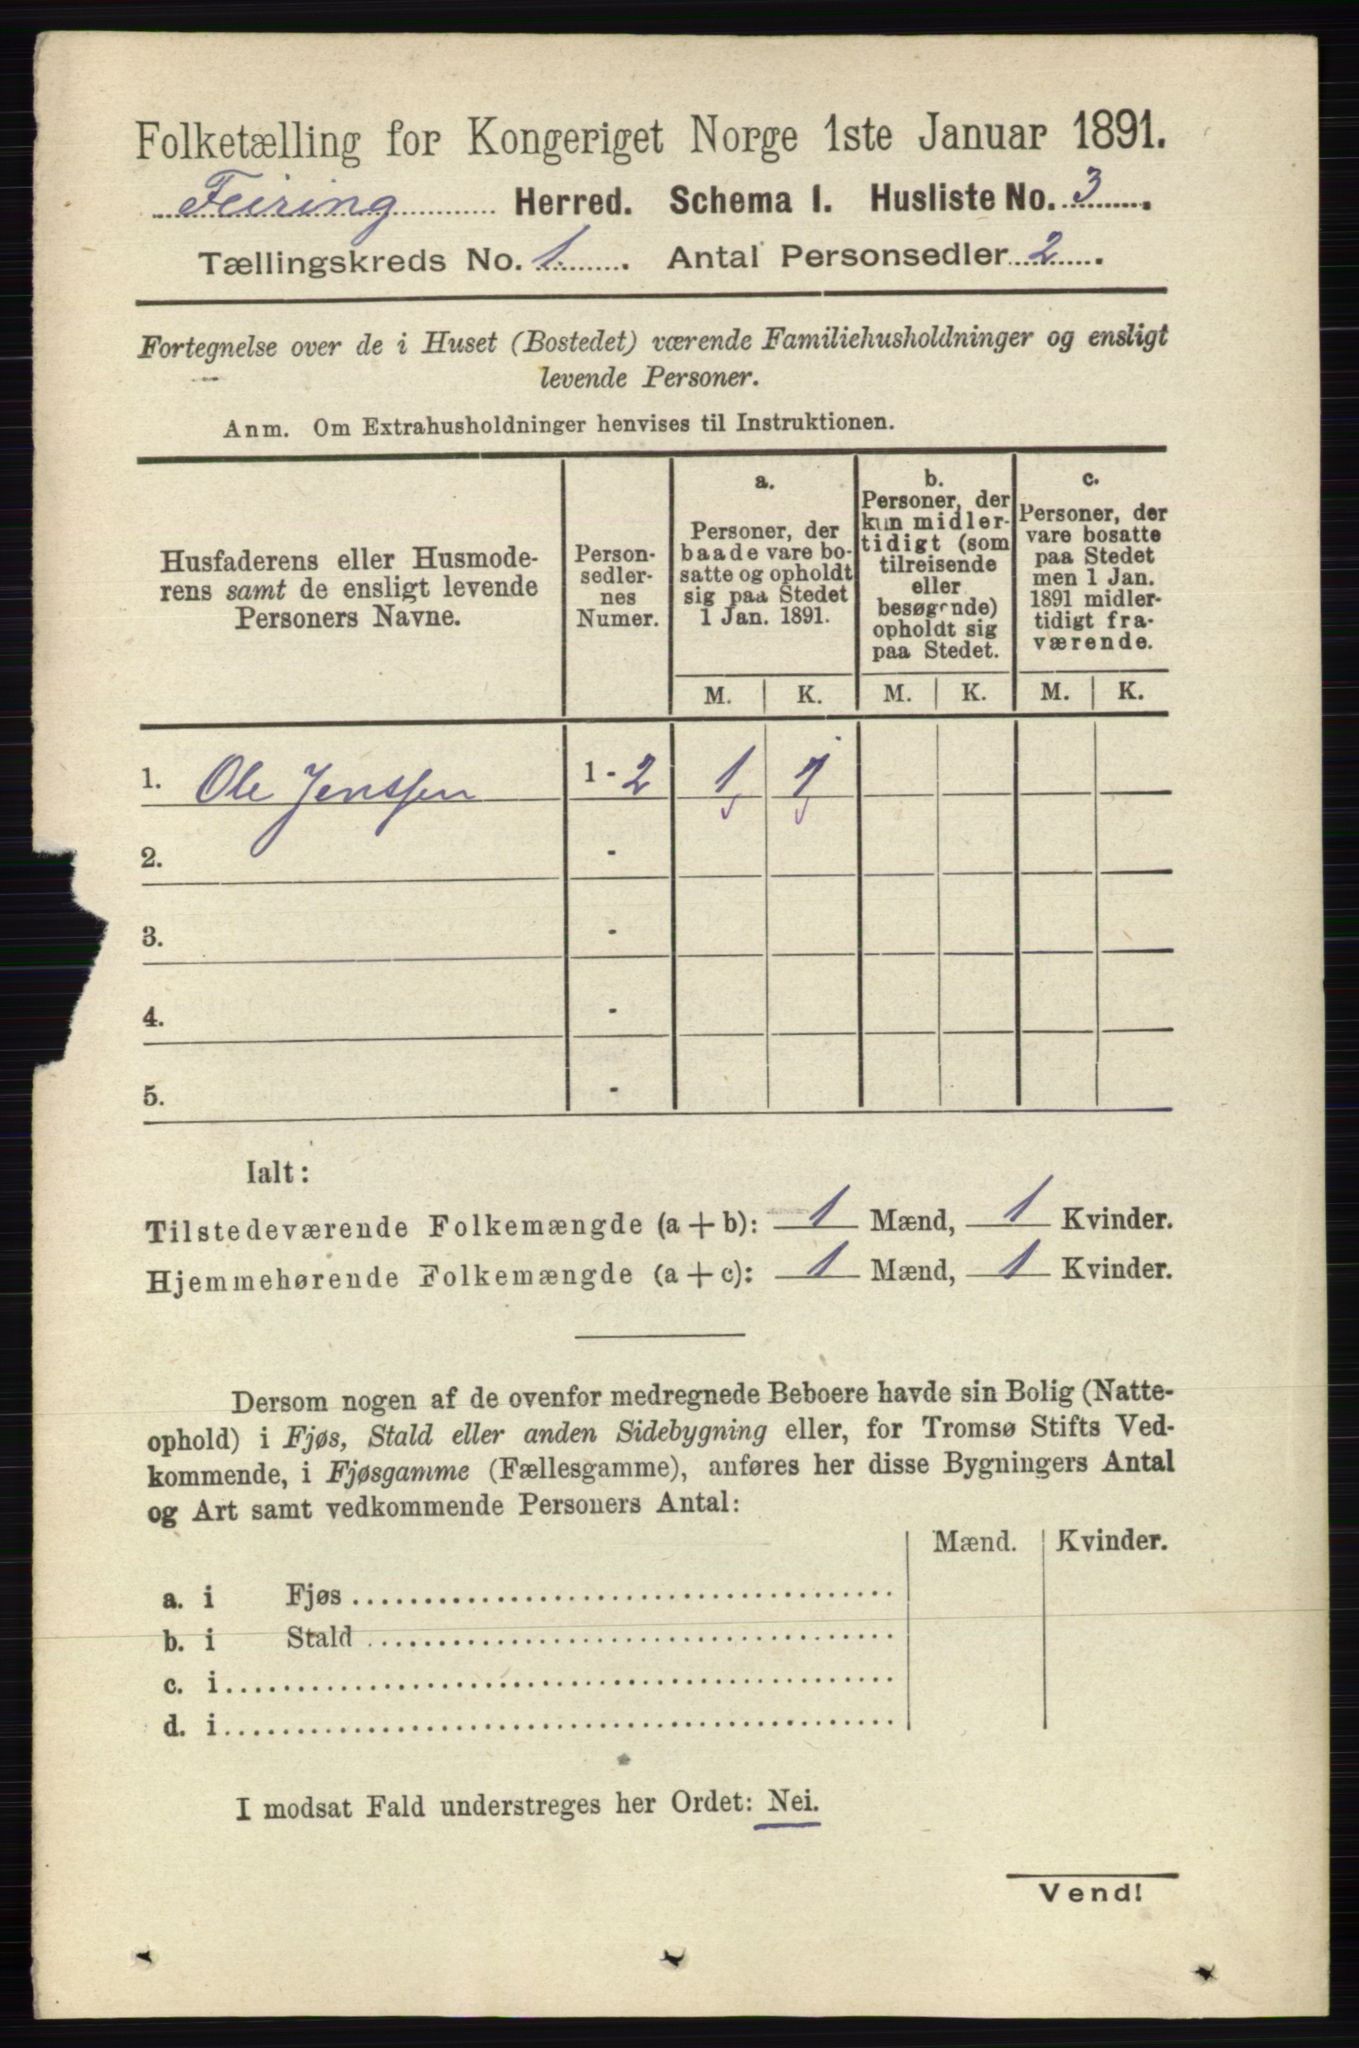 Folketælling for Kongeriget Norge 1ste Januar 1891.
Feiring Herred. Schema I. Husliste No. 3.
Tællingskreds No. 1. Antal Personsedler 2.
Fortegnelse over de i Huset (Bostedet) værende Familiehusholdninger og ensligt
levende Personer.
Anm. Om Extrahusholdninger henvises til Instruktionen.
Husfaderens eller Husmode-
rens samt de ensligt levende
Personers Navne.
Person-
sedler-
nes
Numer.
a.
Personer, der
baade vare bo-
satte og opholdt
sig paa Stedet
1 Jan. 1891.
b.
Personer, der
kun midler-
tidigt (som
tilreisende
eller
besøgende)
opholdt sig
paa Stedet.
c.
Personer, der
vare bosatte
paa Stedet
men 1 Jan.
1891 midler-
tidigt fra-
værende.
M. K. M. K. M. K.
1. Ole Jenssen 1 - 2 1 1
2. -
3. -
4. -
5. -
Ialt:
Tilstedeværende Folkemængde (a + b): 1 Mænd, 1 Kvinder.
Hjemmehørende Folkemængde (a + c): 1 Mænd, 1 Kvinder.
Dersom nogen af de ovenfor medregnede Beboere havde sin Bolig (Natte-
ophold) i Fjøs, Stald eller anden Sidebygning eller, for Tromsø Stifts Ved-
kommende, i Fjøsgamme (Fællesgamme), anføres her disse Bygningers Antal
og Art samt vedkommende Personers Antal:
Mænd. Kvinder.
a. i Fjøs
b. i Stald
c. i
d. i
I modsat Fald understreges her Ordet: Nei.
Vend!